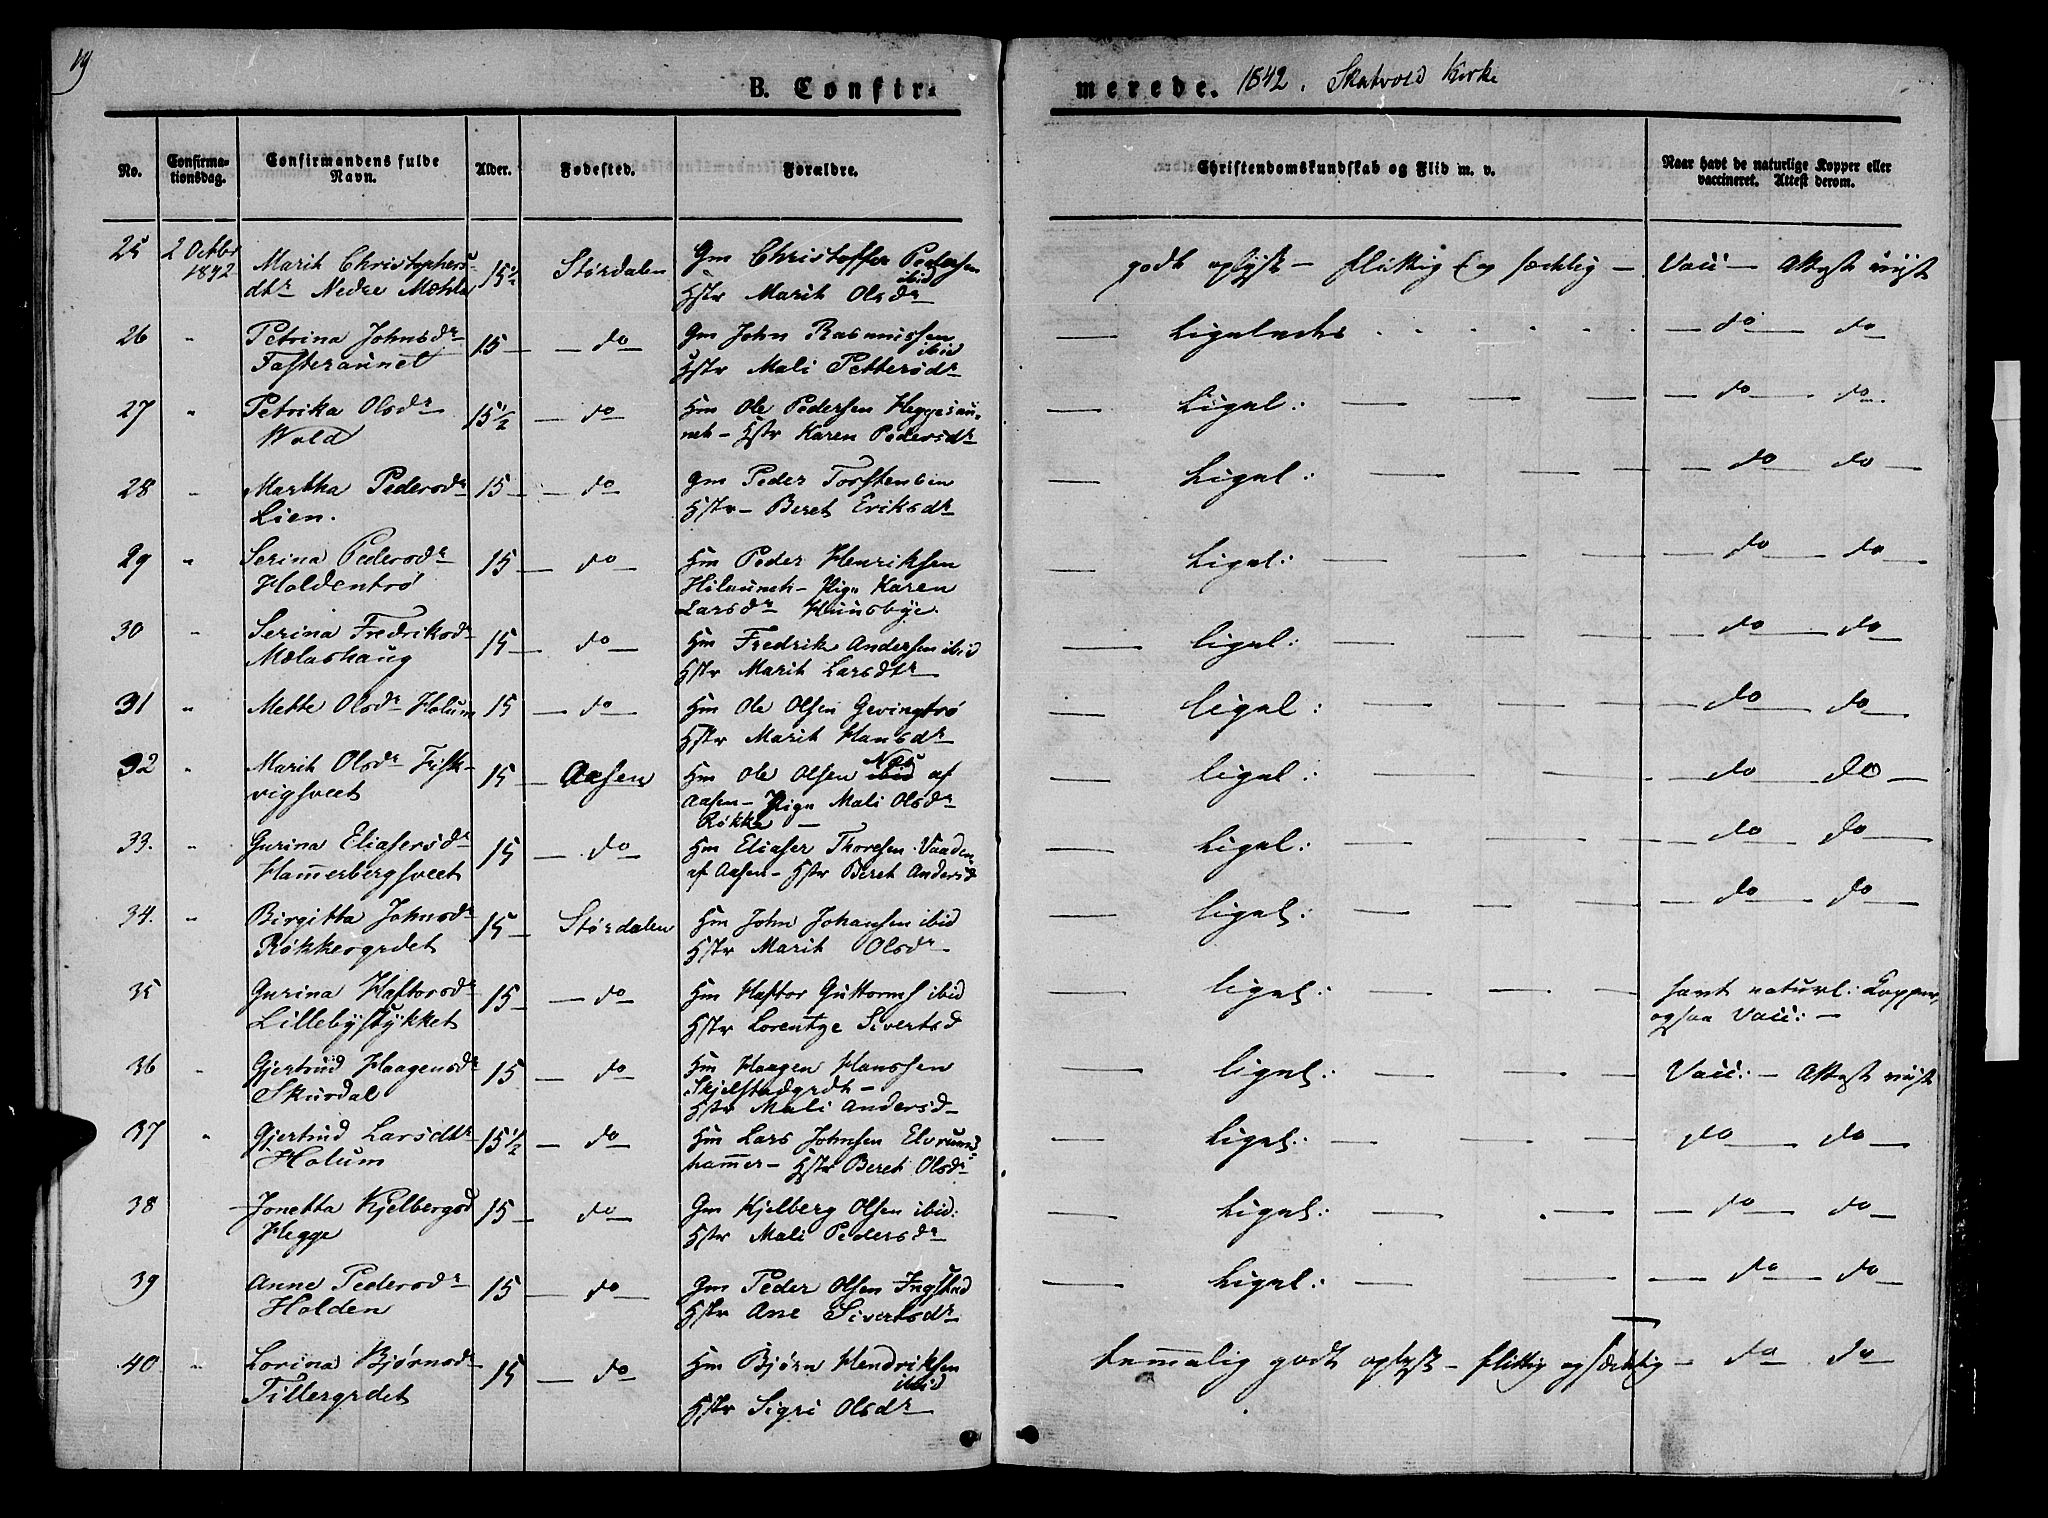 19
B. Confir-
merede. 1842. Skatvold Kirke
No. Confirma-tionsdag. Confirmandens fulde Navn. Alder. Fødested. Forældre. Christendomskundskab og Flid m. v. Naar havt de naturlige Kopper eller vaccineret. Attest derom.
25 2 Octbr 1842 Marit Christophers- 15½ Størdalen Gm Christoffer Pedersen ibid godt oplyst — flittig og sædelig — Vacc — Attest viist
dtr Nedre Hstr Marit Olsdr
26 " Petrina Johnsdr 15 — do — Gm John Rasmussen ibid — Ligeledes — do — do —
Fasteraunet Hstr Mali Pettersdr
27 " Petrika Olsdr 15½ — do — Hm Ole Pedersen Heggesau- — Ligel: — — — — do — do —
Wold net — Hstr Karen Pedersdr
28 " Martha Pedersdr 15 — do — Gm Peder Torstensen — Ligel: — — — — do — do —
Lien. Hstr — Beret Eriksdr
29 " Serina Pedersdr 15 — do — Hm Peder Henriksen — Ligel: — — — — do — do —
Holdentrø Hilaunet — Pige Karen
Larsdr Huusbye.
30 " Serina Fredriksdr 15 — do — Hm Fredrik Andersen ibid — ligel: — — — — do — do —
Mælashaug Hstr Marit Larsdtr
31 " Mette Olsdr Holum 15 — do — Hm Ole Olsen Gevingtrø — ligel: — — — — do — do —
Hstr Marit Hansdr
32 " Marit Olsdr Fisk- 15 — Aasen Hm Ole Olsen ibid Næs af — ligel: — — — — do — do —
vigsveet Aasen — Pige Mali Olsdr
Røkke —
33. " Gurina Eliasersdr 15 — do — Hm Eliaser Thoresen Vaaden — Ligel: — — — — do — do —
Hammerbergsveet af Aasen — Hstr Beret Andersd
34. " Birgitta Johnsdr 15 — Størdalen Hm John Johansen ibid — ligel: — — — — do — do —
Røkkergrdet Hstr Marit Olsdr
35 Gurina Haftorsdr 15 — do — Hm Haftor Guttorms ibid — ligel: — — — havt naturl: Kopper,
Lillebystykket Hstr Lorentze Sivertsd ogsaa Vacc: —
36 " Gjertrud Haagensdr 15 — do — Hm Haagen Hanssen — ligel: — — — Vacc: — Attest viist
Skurdal Skjelstadgrdt —
Hstr Mali Andersd —
37 " Gjertrud Larsdtr 15½ — do — Hm Lars Johnsen Elvruns- — Ligel: — — — do — do —
Holum hammer — Hstr Beret Olsdr
38 Jonetta Kjelbergsd 15 — do — Gm Kjelberg Olsen ibid: — Ligel: — — — — do — do —
Hegge Hstr Mali Pedersdr
39 Anne Pedersdr 15 — do — Gm Peder Olsen Ingstad — Ligel: — — — — do — do —
Holden Hstr Ane Sivertsdr
40 " Lorina Bjørnsdr 15 — do — Hm Bjørn Hendriksen ibid temmelig godt oplyst — flittig og sædelig — do — do —
Tillergrdet Hstr Sigri Olsdr